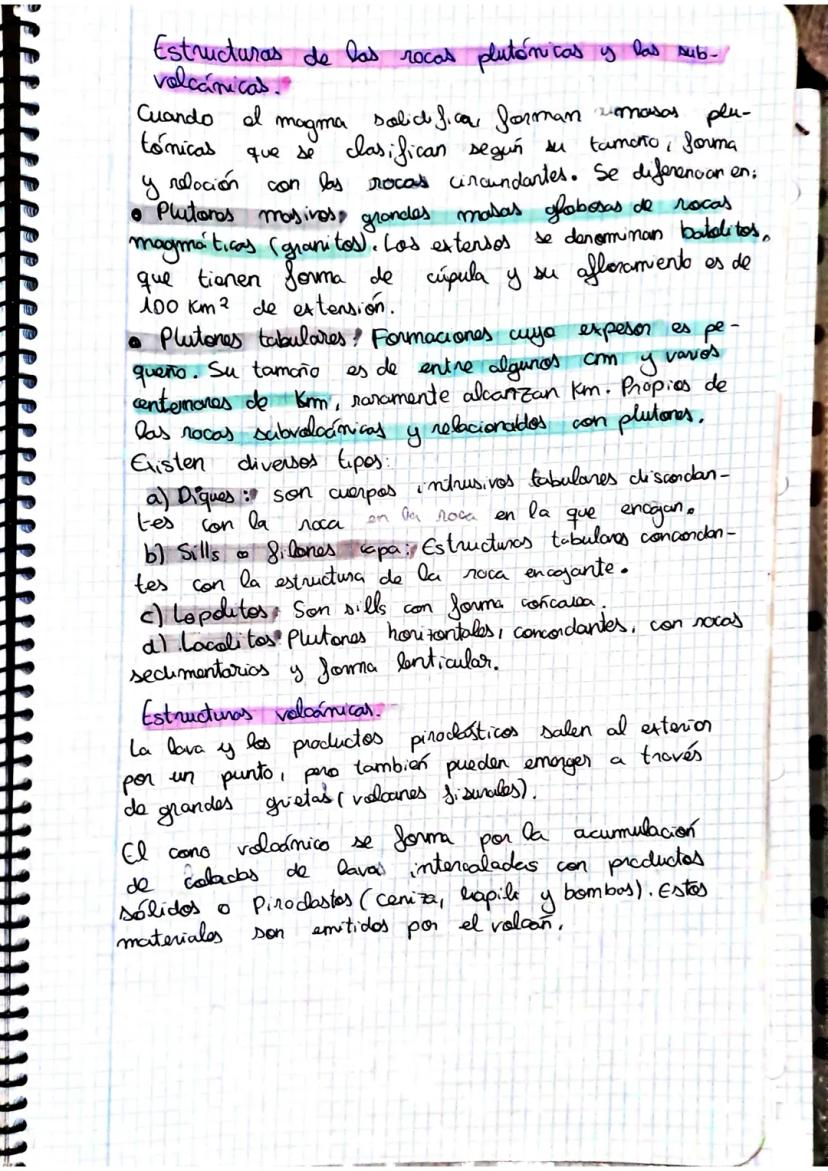 Estructuras de las rocas plutónicas y las sub-
volcánicas.
Cuando el magma solidifica, forman masas plu-
tónicas que se clasifican según su tamaño, forma
y relación con las rocas circundantes. Se diferencian en:
• Plutones masivos, grandes masas globosas de rocas
magmáticas (granitos). Los extensos se denominan batolitos,
que tienen forma de cúpula y su afloramiento es de
100 Km² de extensión.
• Plutones tabulares: Formaciones cuyo expesor es pe-
queño. Su tamaño es de entre algunos cm y varios
centenares de Km, raramente alcanzan Km. Propios de
las rocas subvolcánicas y relacionados con plutones.
Existen diversos tipos:
a) Diques: son cuerpos intrusivos tabulares discordan-
tes con la roca en la roca en la que encajan.
b) Sills o filones capa: Estructuras tabulares concordan-
tes con la estructura de la roca encajante.
c) Lopolitos: Son sills con forma cóncava.
d) Lacolitos: Plutones horizontales, concordantes, con rocas
sedimentarios y forma lenticular.
Estructuras volcánicas.
La lava y los productos piroclásticos salen al exterior
por un punto, pero también pueden emerger a través
de grandes grietas (volcanes fisurales).
El cono volcánico se forma por la acumulación
de coladas de lavas intercaladas con productos
sólidos o Piroclastos (ceniza, lapilli y bombas). Estos
materiales son emitidos por el volcán.